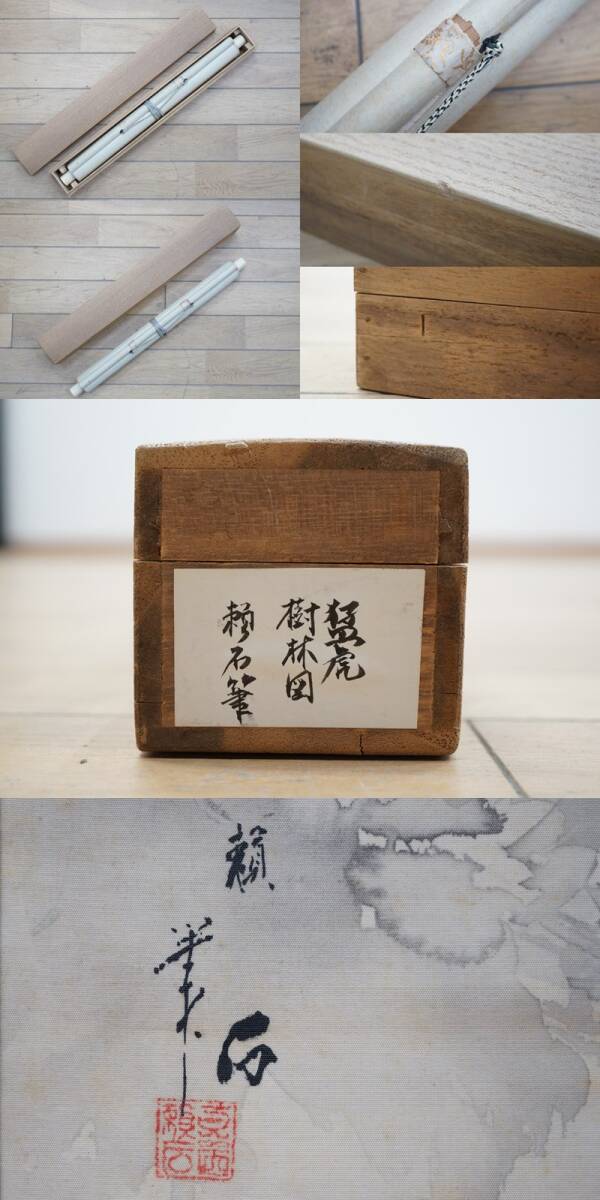 猛虎
樹林図
頼石筆
頼石
筆